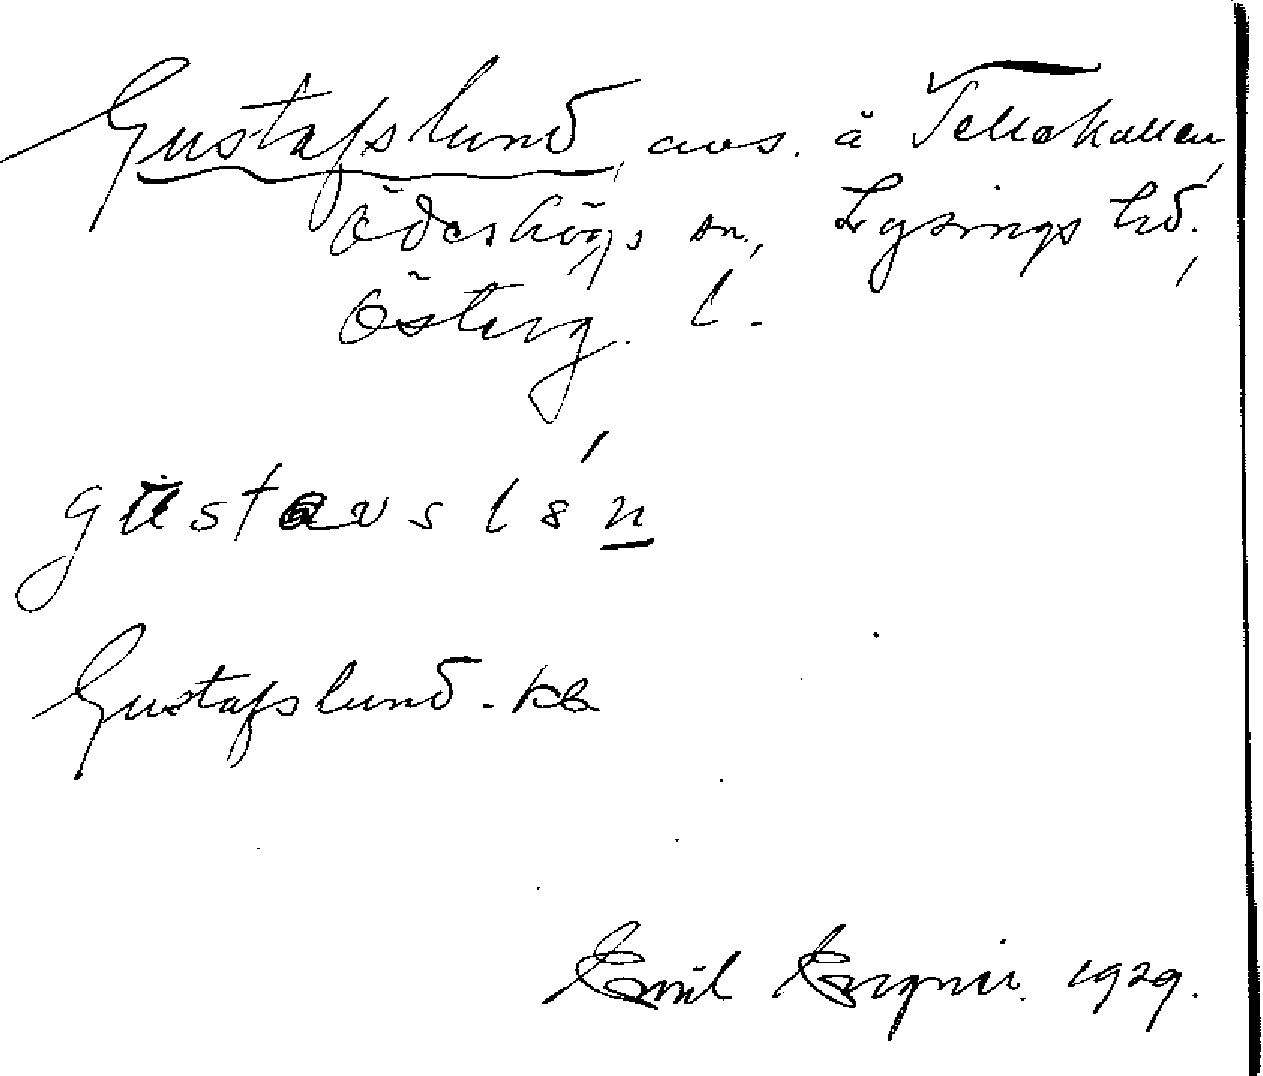 Gustafslund, avs. å Tellekullen,
Ödeshögs sn, Lysings hd.,
Österg. l.
gustavslún
Gustafslund - kb
Emil 1929.